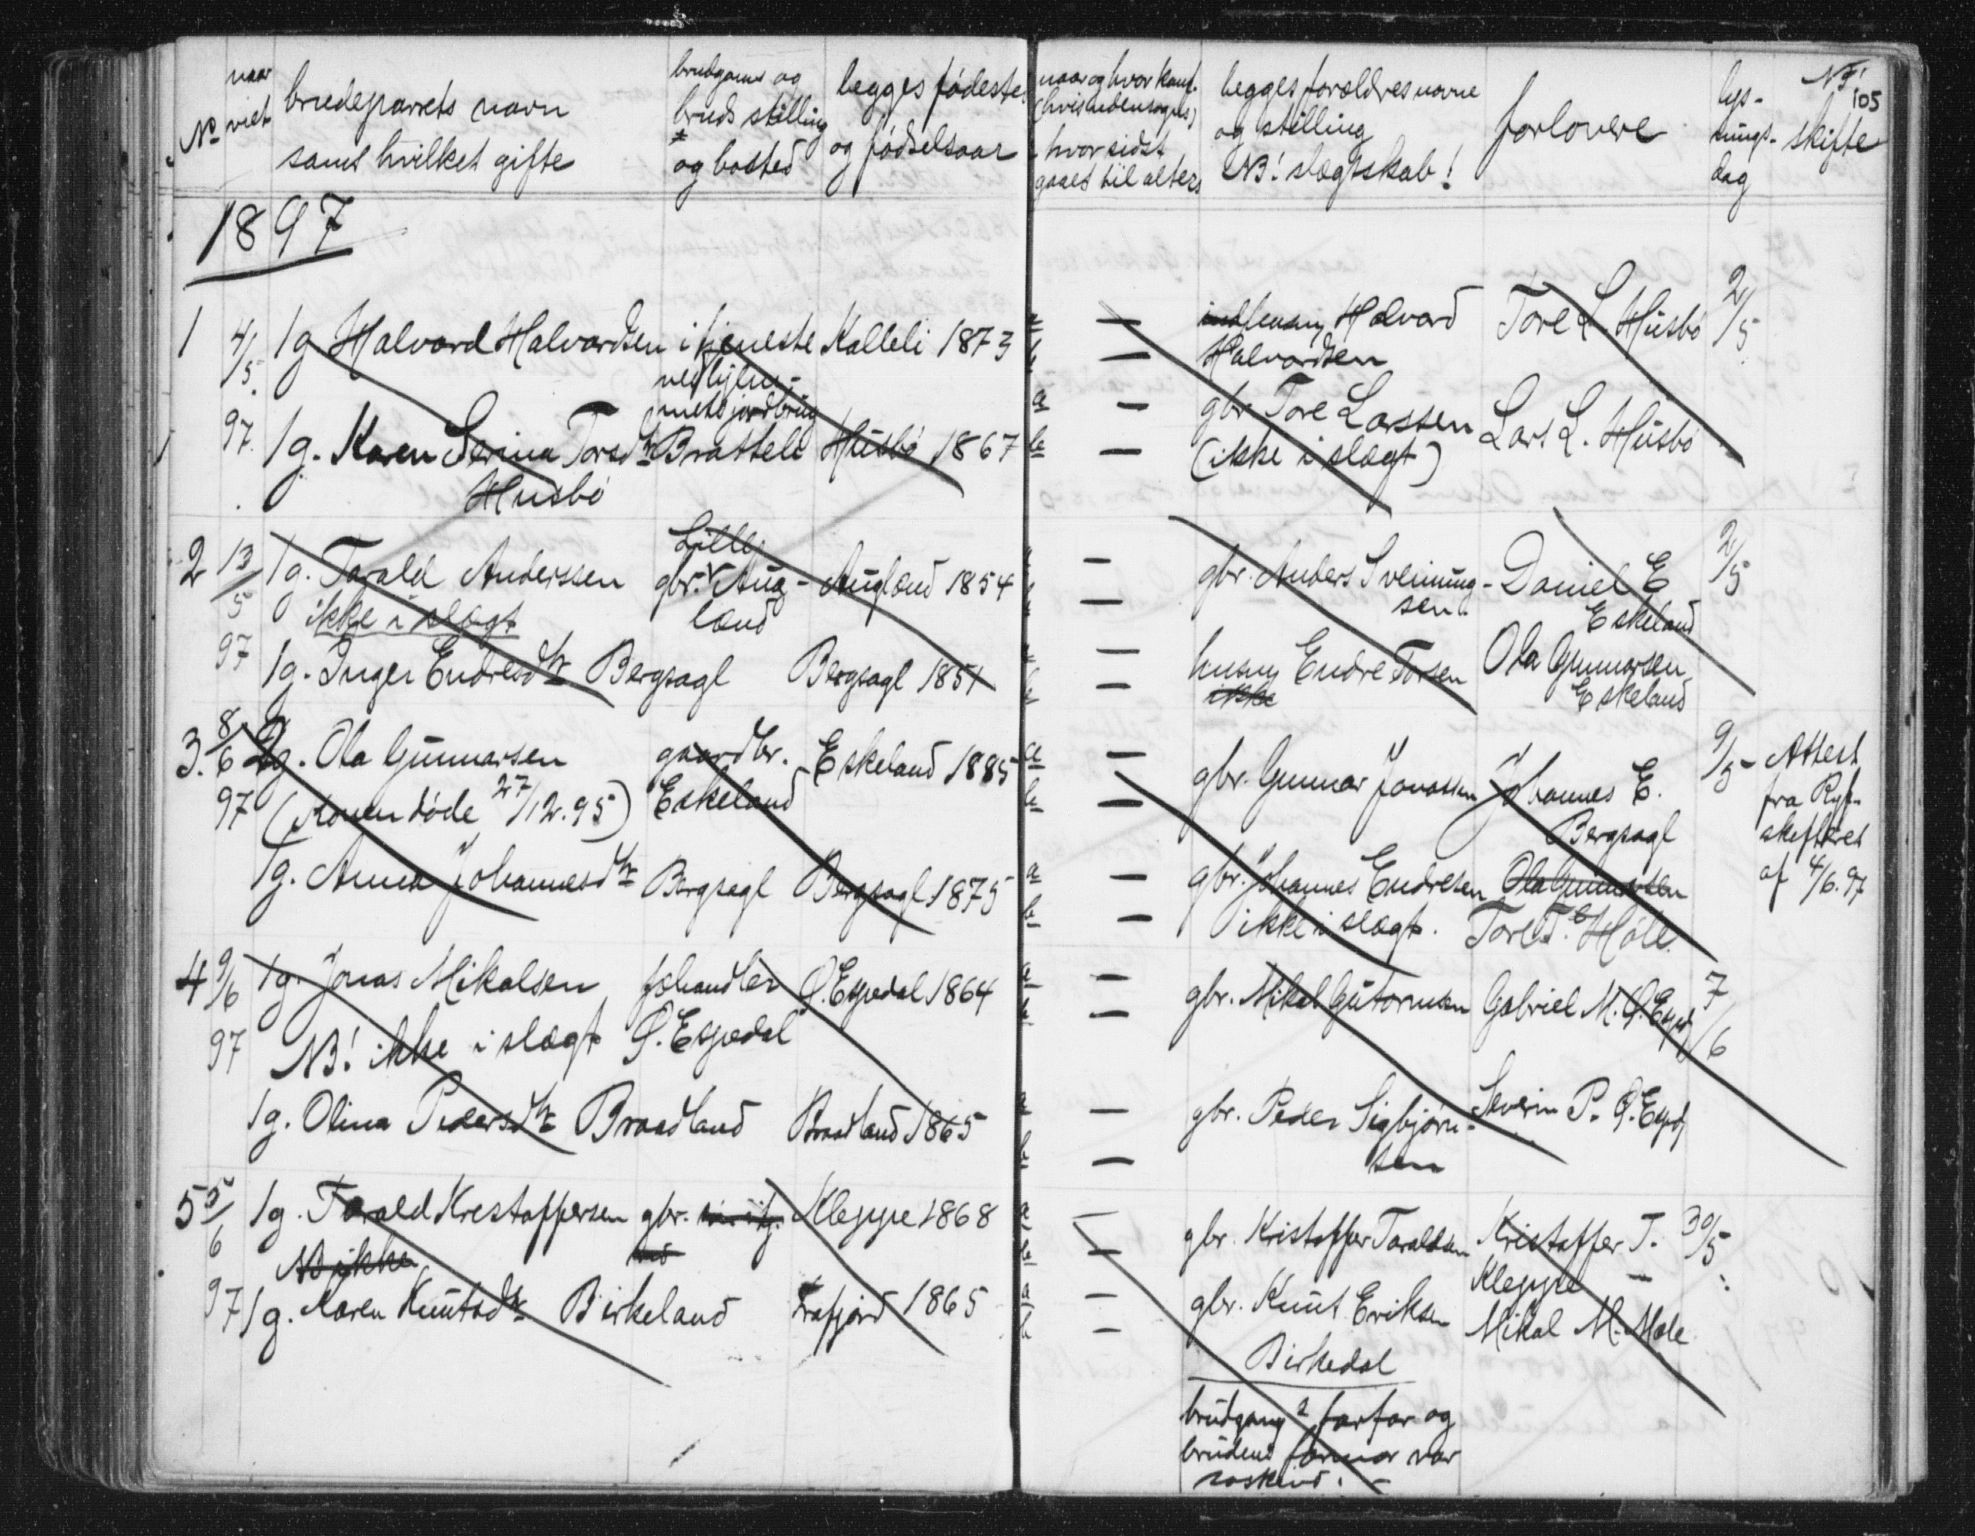 No naar viet
brudeparrets navn
samt hvilket gifte
brudgoms og
bruds stilling
og bosted
begges fødested
og fødselsaar
naar og hvor konf.
(hvis udensogns)
hvor sidst
gaaet til alters
begges forældres navne
og stilling
NB! slægtskab!
forlovere
lys-
nings-
dag
skifte
105
1897
1 4/5 97 1g Halvard Halvardsen i tjeneste Kalleli 1873 a — indhusm Halvard Tore L. Husbø 2/5
b — Halvardsen
med jordbrug a — gbr Tore Larssen Lars L. Husbø
1g. Karen Serina Torsdtr Bratteli Husbø 1867 b — (ikke i slægt)
Husbø
2 13/5 97 1g. Tarald Anderssen Lille
gbr. Aug- Augland 1854 — gbr. Anders Sveinung- Daniel E 2/5
ikke i slægt land — sen. Eskeland
1g. Inger Endresdtr Bergsagl Bergsagl 1851 — husm Endre Torsen Ola Gunnarsen
— ikke Eskeland
3. 8/6 97 2g. Ola Gunnarsen gaardbr. Eskeland 1885 a — gbr. Gunnar Jonassen Johannes E. 9/5 Attest
(Konen døde 27/12.95) Eskeland b — Bergsagl fra Ryf.
skifteret
1g. Anna Johannesdtr Bergsagl Bergsagl 1875 a — gbr. Johannes Endresen Ola Gunnarsen af 4/6.97
b — ikke i slægt. Tore T. Høle
4 9/6 97 1g. Jonas Mikalsen fehandler Ø. Espedal 1864 a — gbr. Mikal Gutormsen Gabriel M. Ø. Espd 7/6
NB! ikke i slægt Ø. Espedal —
1g. Olina Pedersdtr Braadland Braadland 1865 — gbr. Peder Sigbjørn- Severin P. Ø. Espd
— sen
5 5/6 97 1g. Tarald Kristoffersen gbr. Kleppe 1868 a — gbr. Kristoffer Taraldsen Kristoffer T. 30/5
NB ikke b — Kleppe
1g. Karen Knutsdtr Birkeland Frafjord 1865 a — gbr. Knut Eriksen Mikal M. Mæle
Birkedal
brudgoms farfar og
brudens farmor var
søskend.